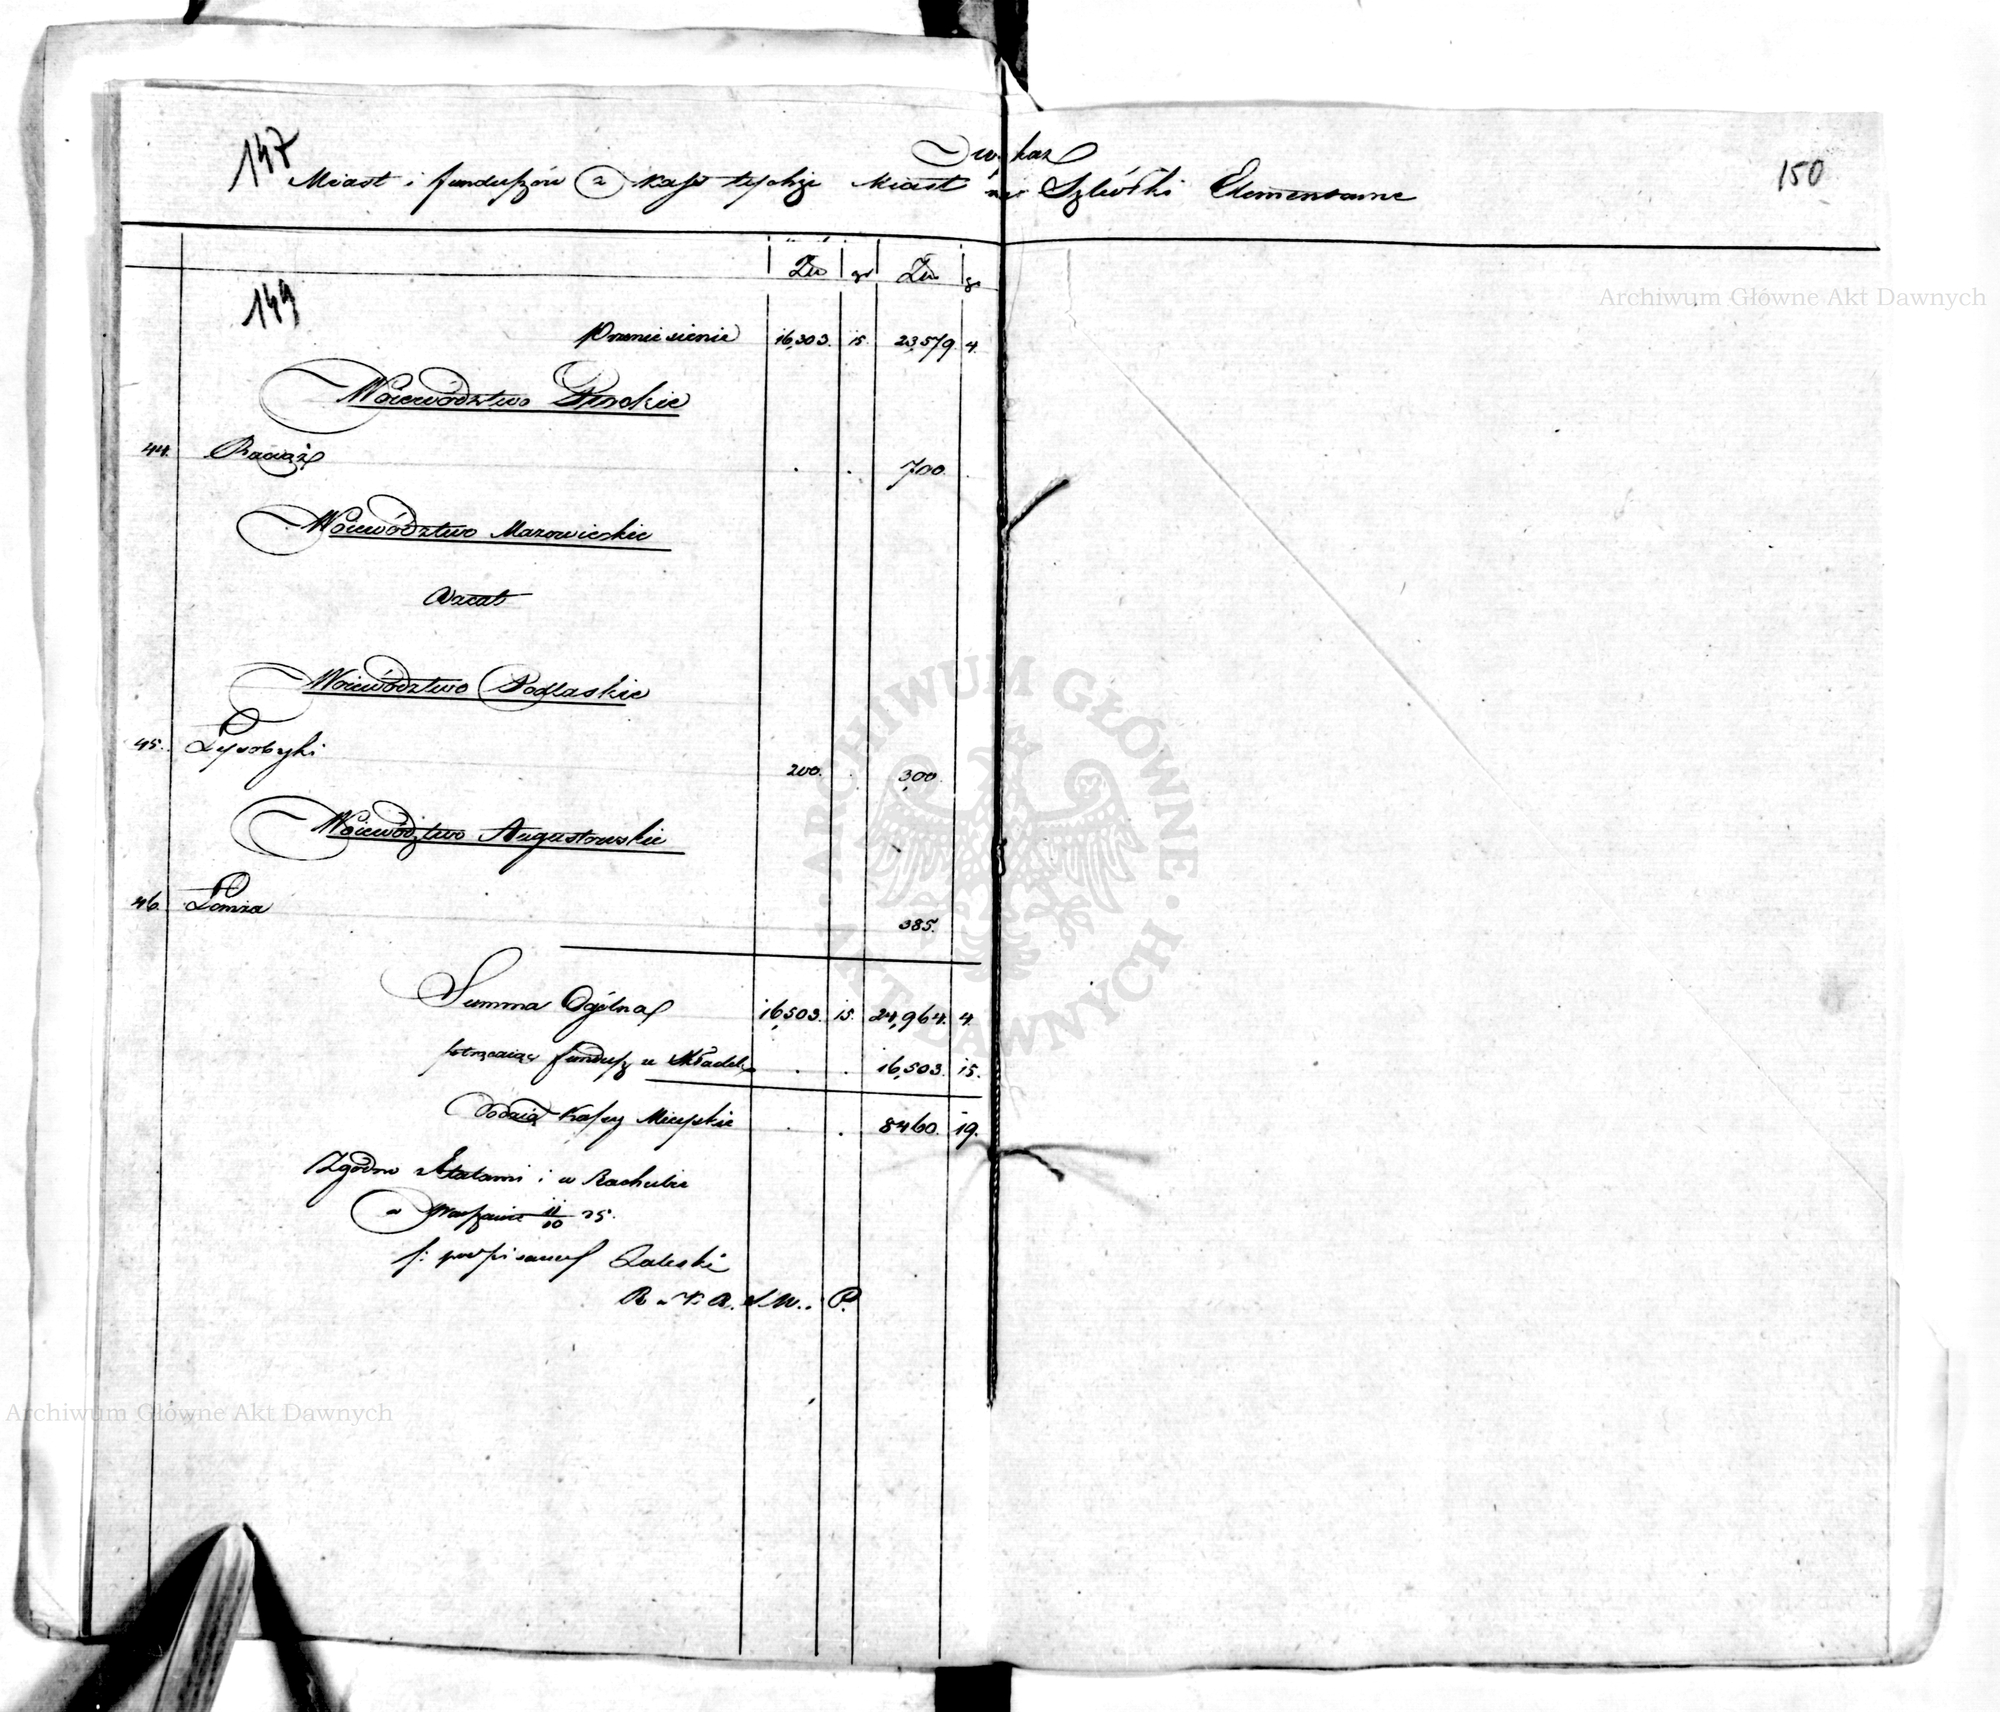 147
Wykaz
150
Miast i funduszów z Kass tychże Miast na Szkółki Elementarne
Zło gr Zło gr
149
Przeniesienie 16,303. 15. 23,579. 4.
Woiewództwo Płockie
44. Raciąż . . 700. .
Woiewództwo Mazowieckie
Vacat
Woiewództwo Podlaskie
45. Łysobyki 200. . 300.
Woiewództwo Augustowskie
46. Łomża 385.
Summa Ogólna 16,503. 15. 24,964. 4.
potrąciwszy fundusz z Składek . . 16,503. 15.
Kassy Mieyskie . . 8460. 19.
Zgodno z Etatami i w Rachubie
w Warszawie 11/10 25.
f: podpisany Zaleski
Archiwum Główne Akt Dawnych
Archiwum Główne Akt Dawnych
ARCHIWUM GŁÓWNE AKT DAWNYCH